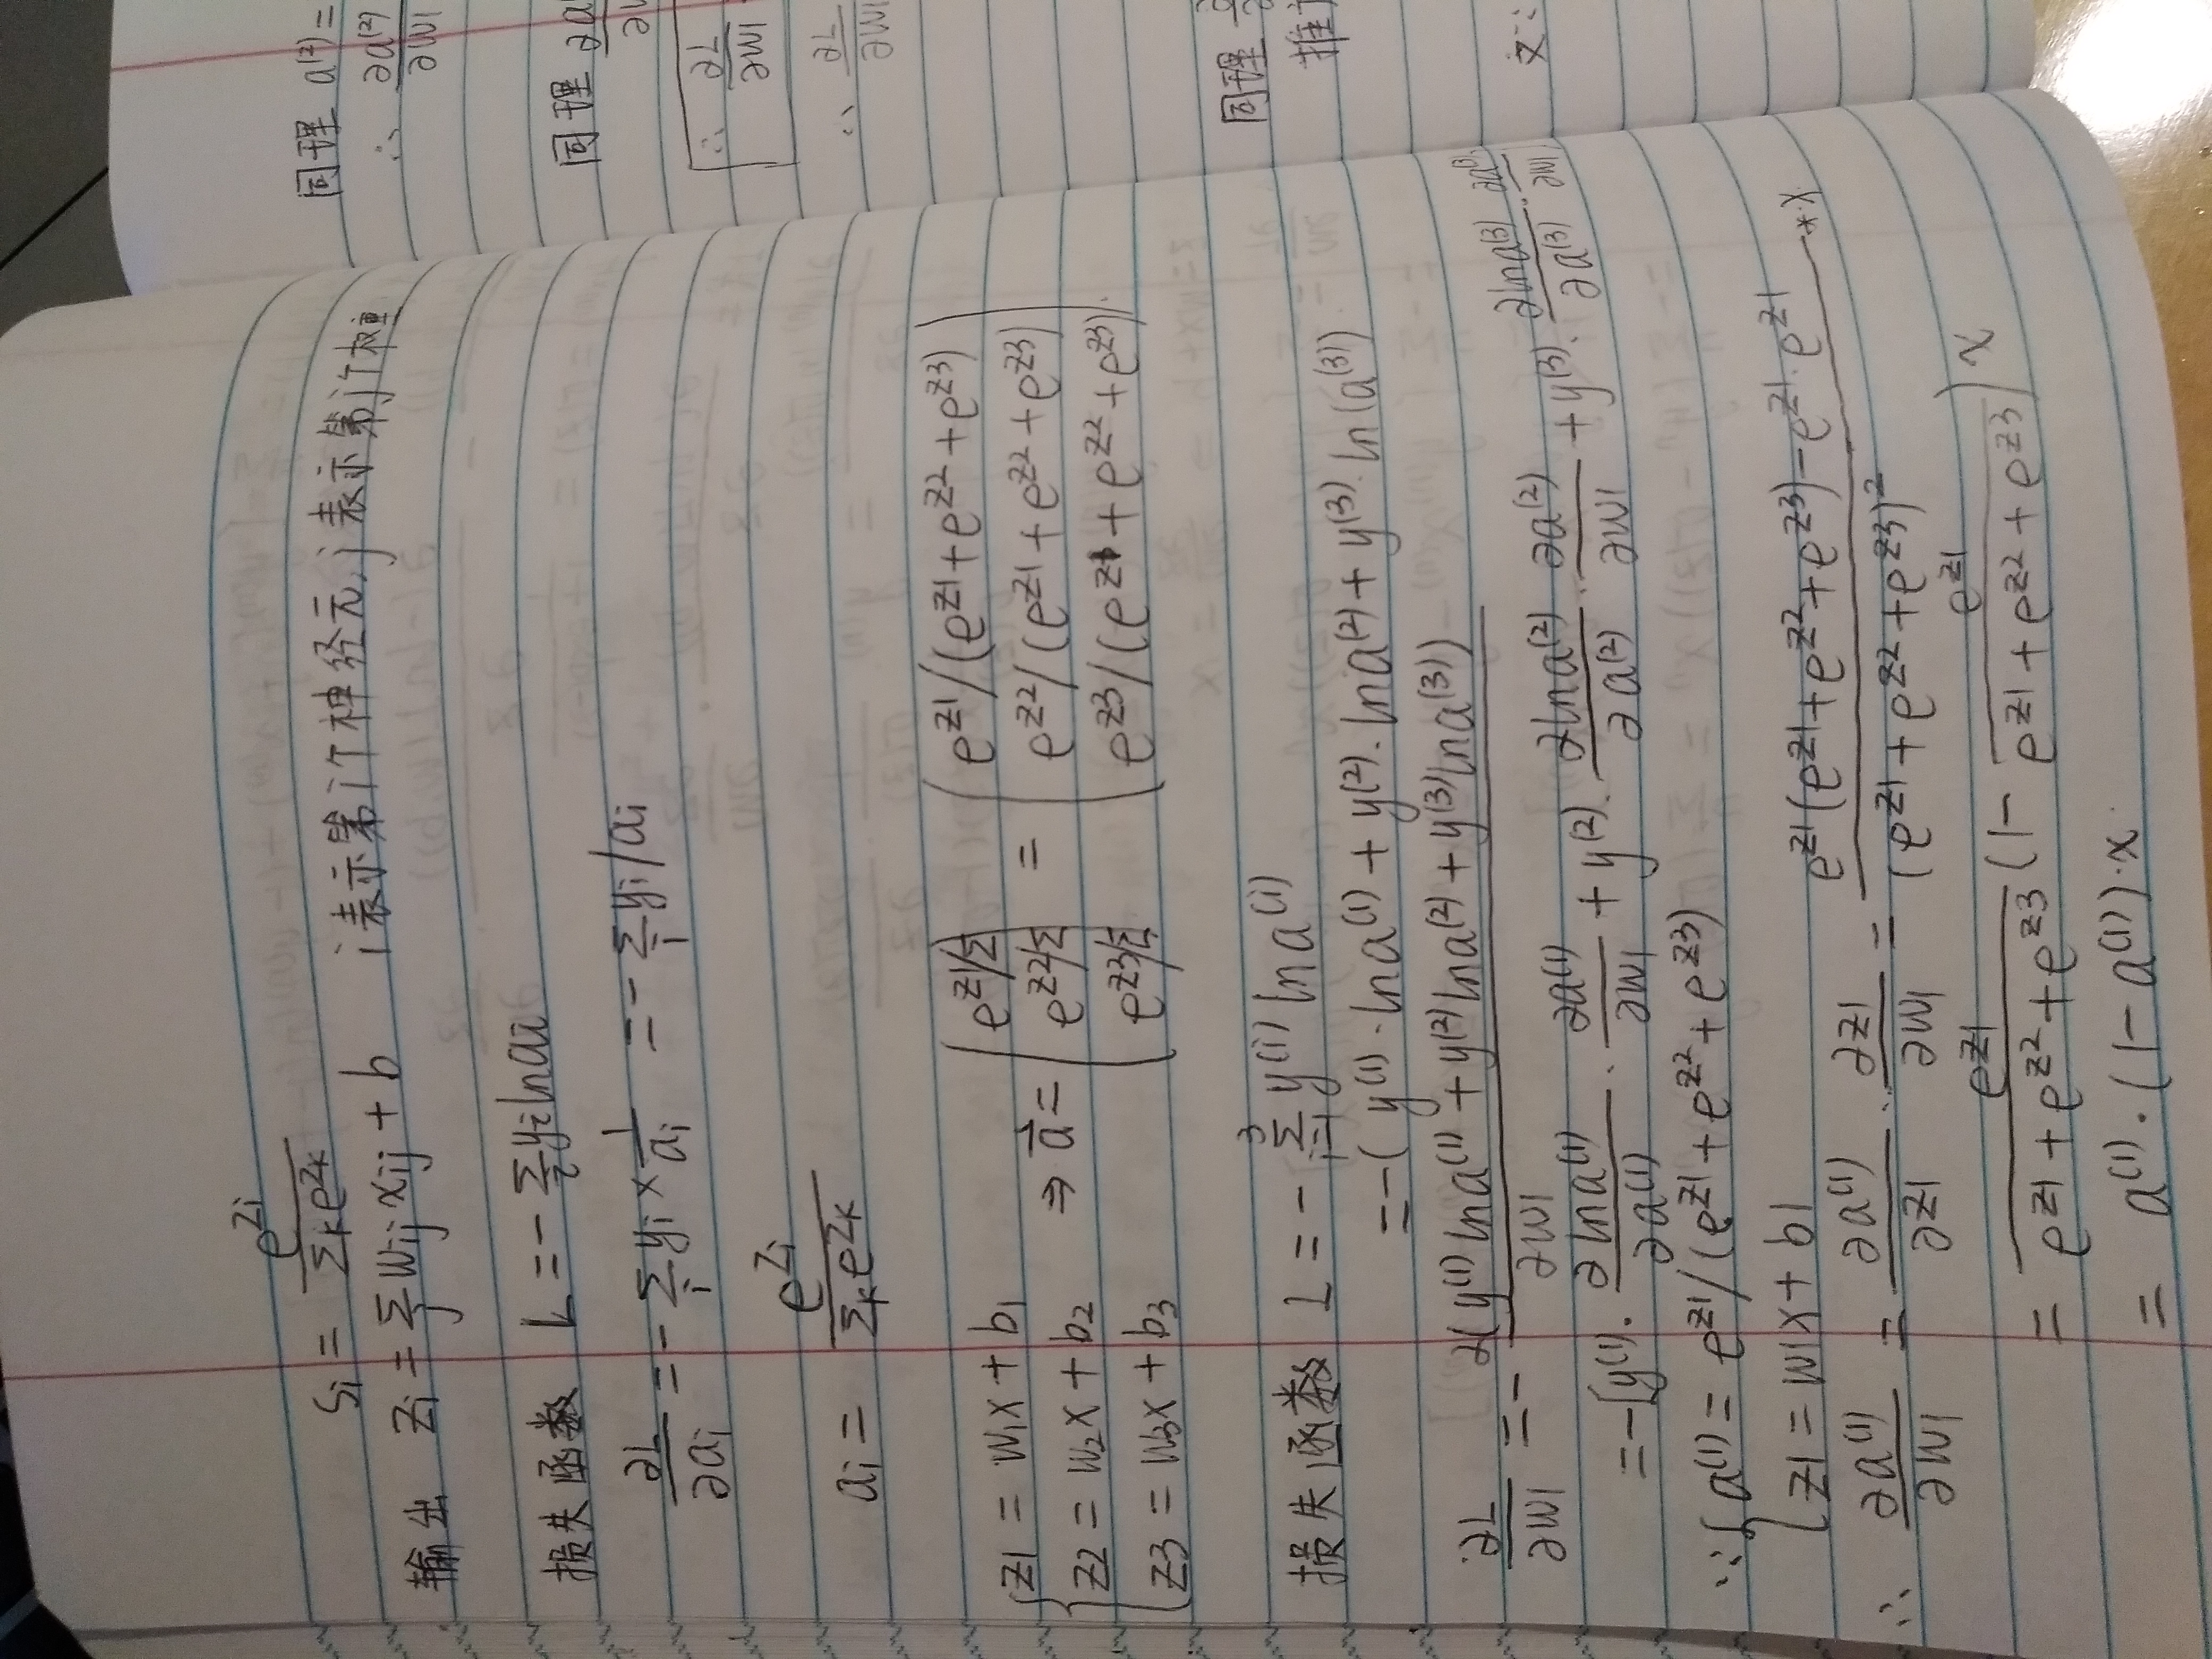 Si = e^{Zi} / Σ_k e^{Zk}
输出 Zi = Σ_j Wij xij + b i表示第i个神经元, j表示第j个权重
损失函数 L = - Σ_i yi ln ai
∂L/∂ai = - Σ_i yi × 1/ai = - Σ_i yi/ai
ai = e^{Zi} / Σ_k e^{Zk}
z1 = w1x + b1
z2 = w2x + b2
z3 = w3x + b3
⇒ a⃗ = ( e^{z1}/Σ e^{z2}/Σ e^{z3}/Σ ) = ( e^{z1}/(e^{z1}+e^{z2}+e^{z3}) e^{z2}/(e^{z1}+e^{z2}+e^{z3}) e^{z3}/(e^{z1}+e^{z2}+e^{z3}) )
损失函数 L = - Σ_{i=1}^{3} y^{(i)} ln a^{(i)}
= -( y^{(1)}·ln a^{(1)} + y^{(2)}·ln a^{(2)} + y^{(3)}·ln(a^{(3)})
∂L/∂w1 = - ∂(y^{(1)} ln a^{(1)} + y^{(2)} ln a^{(2)} + y^{(3)} ln a^{(3)}) / ∂w1
= -[y^{(1)}· ∂ln a^{(1)}/∂a^{(1)} · ∂a^{(1)}/∂w1 + y^{(2)}· ∂ln a^{(2)}/∂a^{(2)} · ∂a^{(2)}/∂w1 + y^{(3)}· ∂ln a^{(3)}/∂a^{(3)} · ∂a^{(3)}/∂w1
∵ { a^{(1)} = e^{z1}/(e^{z1}+e^{z2}+e^{z3})
z1 = w1x + b1
∴ ∂a^{(1)}/∂w1 = ∂a^{(1)}/∂z1 · ∂z1/∂w1 = (e^{z1}(e^{z1}+e^{z2}+e^{z3}) - e^{z1}·e^{z1}) / (e^{z1}+e^{z2}+e^{z3})^2 * x
= e^{z1}/(e^{z1}+e^{z2}+e^{z3}) (1 - e^{z1}/(e^{z1}+e^{z2}+e^{z3})) x
= a^{(1)}·(1-a^{(1)})·x
同理 a^{(2)} =
∴ ∂a^{(2)}/∂w1
同理
∴ ∂L/∂w1
∴ ∂L/∂w1
同理